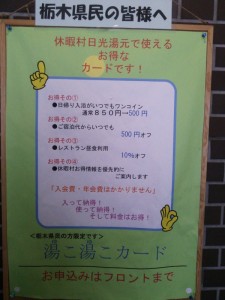 栃木県民の皆様へ
休暇村日光湯元で使える
お得な
カードです！
お得その①
●日帰り入浴がいつでもワンコイン
通常８５０円→500円
お得その②
●ご宿泊代からいつでも
500円オフ
お得その③
●レストラン昼食利用
10%オフ
お得その④
●休暇村お得情報を優先的に
ご案内します
「入会費・年会費はかかりません」
入って納得！
使って納得！
そして料金はお得！
＜栃木県民の方限定です＞
湯こ湯こカード
お申込みはフロントまで